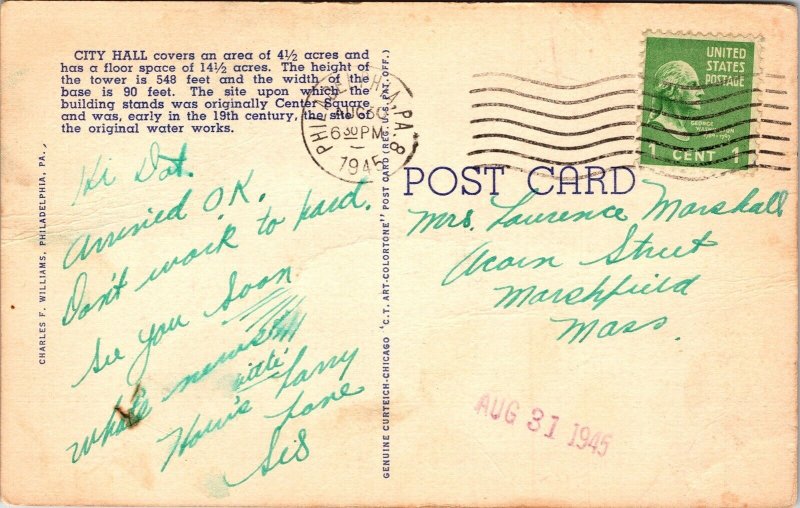 CITY HALL covers an area of 4½ acres and
has a floor space of 14½ acres. The height of
the tower is 548 feet and the width of the
base is 90 feet. The site upon which the
building stands was originally Center Square
and was, early in the 19th century, the site of
the original water works.
Hi Dot.
Arrived OK.
Don't work to hard.
See you soon
What's news
How's Larry
Jane
Sis
CHARLES F. WILLIAMS, PHILADELPHIA, PA.,
GENUINE CURTEICH-CHICAGO "C.T. ART-COLORTONE" POST CARD (REG. U.S. PAT. OFF.)
PHILADELPHIA, PA. 8
AUG 30
6 30 PM
1945
UNITED
STATES
POSTAGE
GEORGE
WASHINGTON
1 CENT 1
POST CARD
Mrs. Laurence Marshall
Acorn Street
Marshfield
Mass.
AUG 31 1945